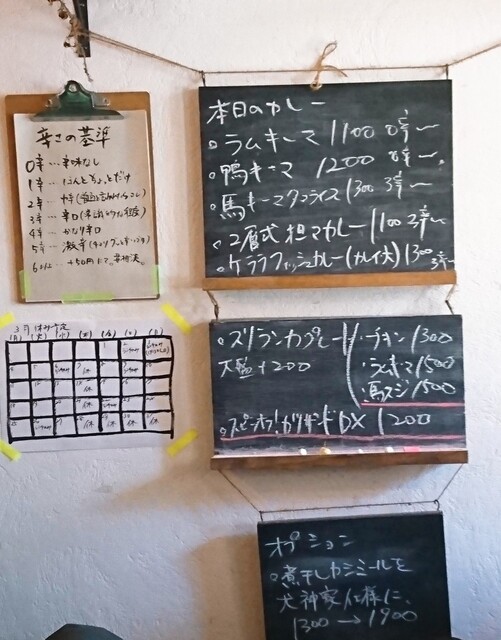 辛さの基準
0辛…辛味なし
1辛…ほんとちょっとだけ
2辛…中辛
3辛…辛口
4辛…かなり辛口
5辛…激辛
6以上…+50円にて。要相談。
3月休み予定
(月) (火) (水) (木) (金) (土) (日)
本日のカレー
ラムキーマ 1100 0辛〜
鴨キーマ 1200 0辛〜
馬キーマタコライス 1300 3辛〜
2層式担マカレー 1100 3辛〜
ケララフィッシュカレー(カレイ大) 1300 3辛〜
スリランカプレート
チキン 1300
大盛+200
ラムキーマ 1500
馬スジ 1500
スピーオフ!カツサンドDX 1200
オプション
煮干しカシミールを
犬神家仕様に、
1300→1900